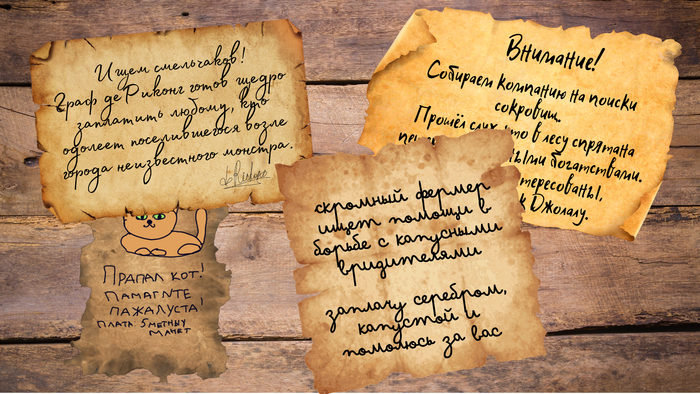 Ищем смельчаков!
Граф де Риконг готов щедро
заплатить любому, кто
одолеет поселившегося возле
города неизвестного монстра.
Внимание!
Собираем компанию на поиски
сокровищ.
Прошёл слух что в лесу спрятана
ными богатствами.
Джолалу.
Прапал кот!
Памагите
пажалуста!
Плата: 5 метных
манет
скромный фермер
ищет помощи в
борьбе с капусными
вридителями
заплачу серебром,
капустой и
помолюсь за вас